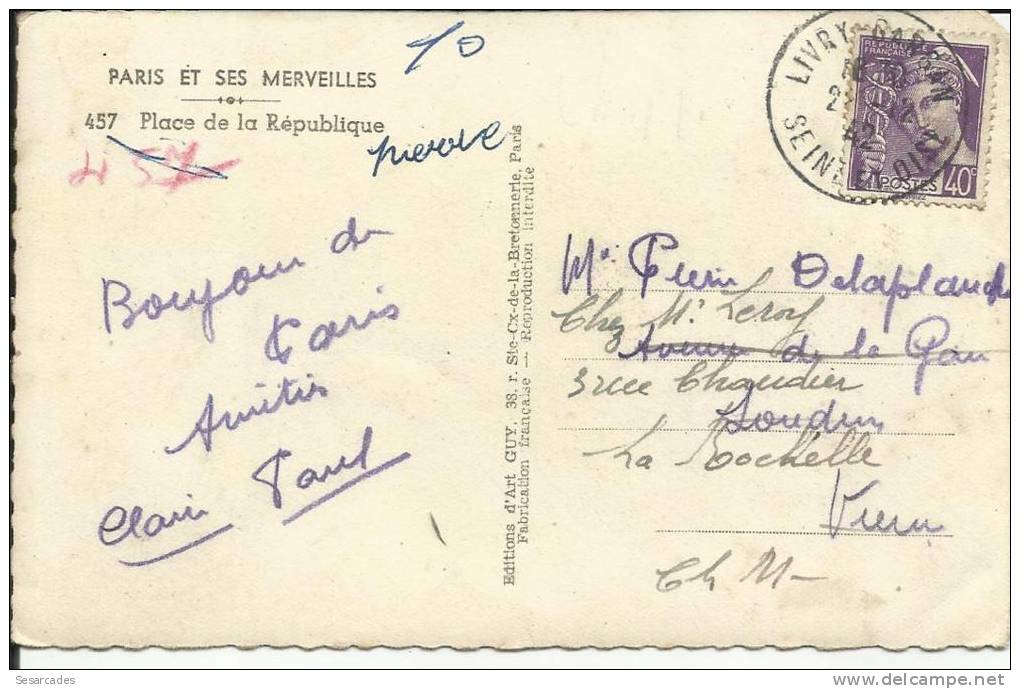 10
PARIS ET SES MERVEILLES
457 Place de la République
457
pierre
Bonjour de
Paris
Amitiés
Claire Paul
Editions d'Art GUY, 38, r. Ste-Cx-de-la-Bretonnerie, Paris
Fabrication française — Reproduction interdite
LIVRY-GARGAN
42
SEINE ET OISE
REPUBLIQUE
FRANÇAISE
POSTES
40c
Mr Pierre Delaplanche
Chez Mr Leroy
Avenue de la Gare
3 rue Chaudier
Loudun
La Rochelle
Vienne
Ch M-
Sesarcades
delcampe.net